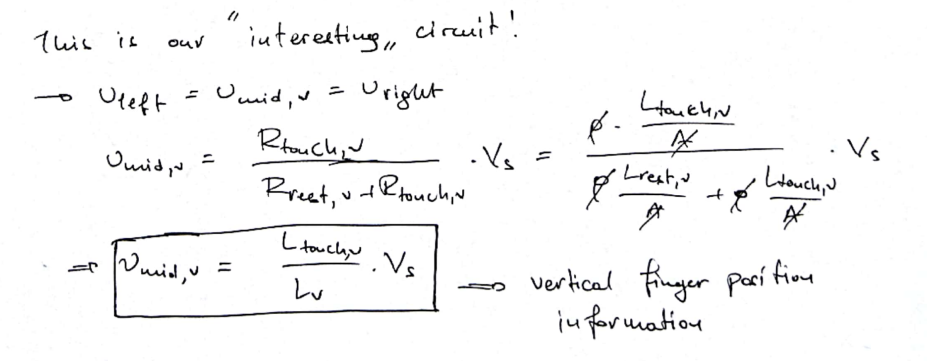 This is our "interesting" circuit!
→ Uleft = Umid,v = Uright
Umid,v = Rtouch,v / (Rrest,v + Rtouch,v) · Vs = (ρ · Ltouch,v / A) / (ρ Lrest,v / A + ρ Ltouch,v / A) · Vs
⇒ Umid,v = Ltouch,v / Lv · Vs ⇒ vertical finger position
information